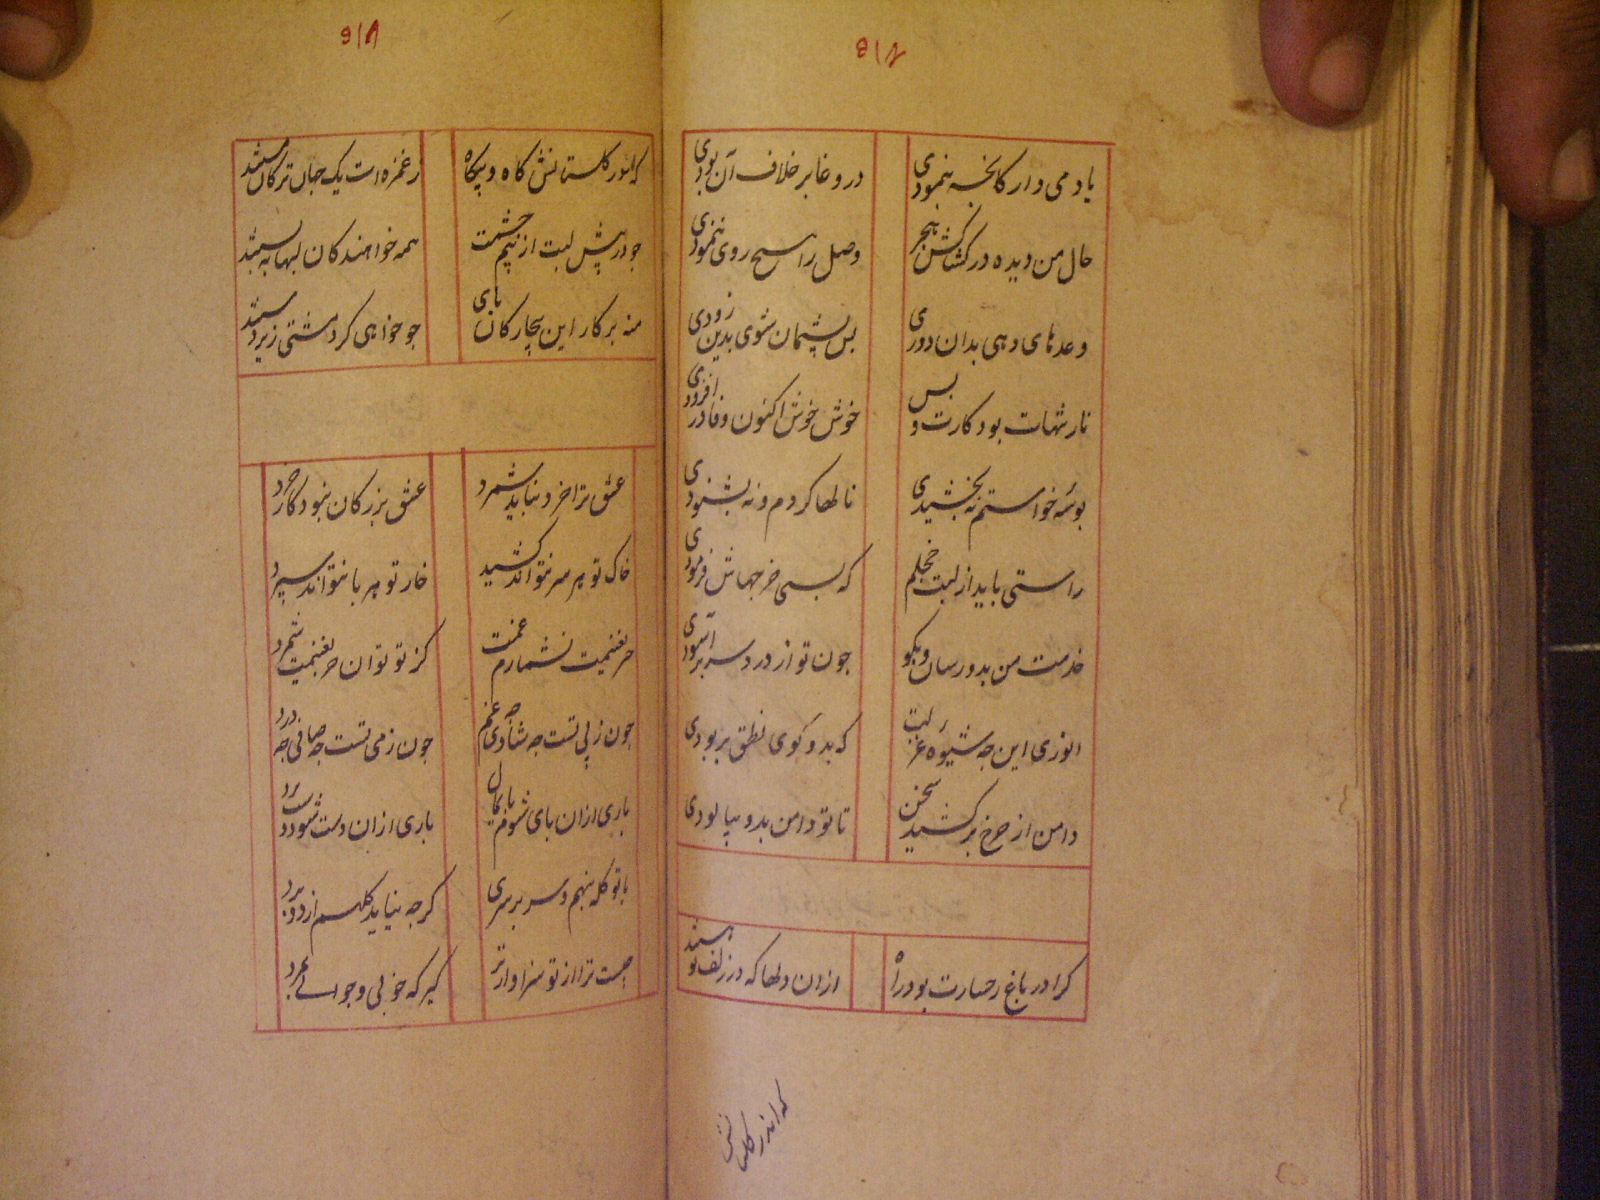 ۸۱۸
یاد می دار کانچه بنمودی
در وفا بر خلاف آن بودی
حال من دیده در کشاکش هجر
وصل را هیچ روی ننمودی
وعدهای دهی بدان دوری
بس پشیمان شوی بدین زودی
تا رشتهات بود کارت و بس
خوش خوش اکنون وفا در افزودی
بوسه خواستم نه بخشیدی
نالها کردم و نه بشنودی
راستی باید از لبت خجلم
که بسی خرجهاش فرمودی
خدمت من بدو رسان و بگو
جون تو از درد سر بر آسودی
انوری این جه شیوه غزلیت
که بدو کوی نطق بربودی
دامن از جرخ بر کشید سخن
تا تو دامن بدو بیالودی
کرا در باغ رخسارت بود راه
ازان دلها که در زلف تو بستند
که اندر کلستانش
۸۱۹
که اندر کلستانش کاه و بیکاه
ز غمزه ات یک جهان ترکان مستند
جو در پیش لبت از بیم جشمت
همه خواهندکان لبها به بستند
منه بر کار این بیجارکان پای
جو خواهی کرد مشتی زیر دستند
عشق ترا خرد نباید شمرد
عشق بزرکان نبود کار خرد
خاک تو هر سر نتواند کشید
خار تو هر پا نتواند سپرد
جز بغنیمت نشمارم غمت
کز تو توان جز بغنیمت شمرد
جون ز پی تست جه شادی جه غم
جون ز می تست جه صافی جه درد
باری ازان پای شوم پایمال
باری ازان دست شود دست برد
با تو کله بنهم و سر بر سری
کرجه نیاید کلهم از دو برد
جست ترا از تو سزاوارتر
کیر که خوبی و جوانی ببرد